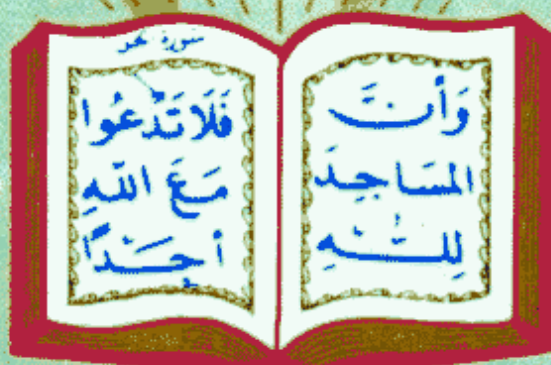 وَأَنَّ
المَسَاجِدَ
لِلَّهِ
سورة
فَلَا تَدْعُوا
مَعَ اللَّهِ
أحَدًا